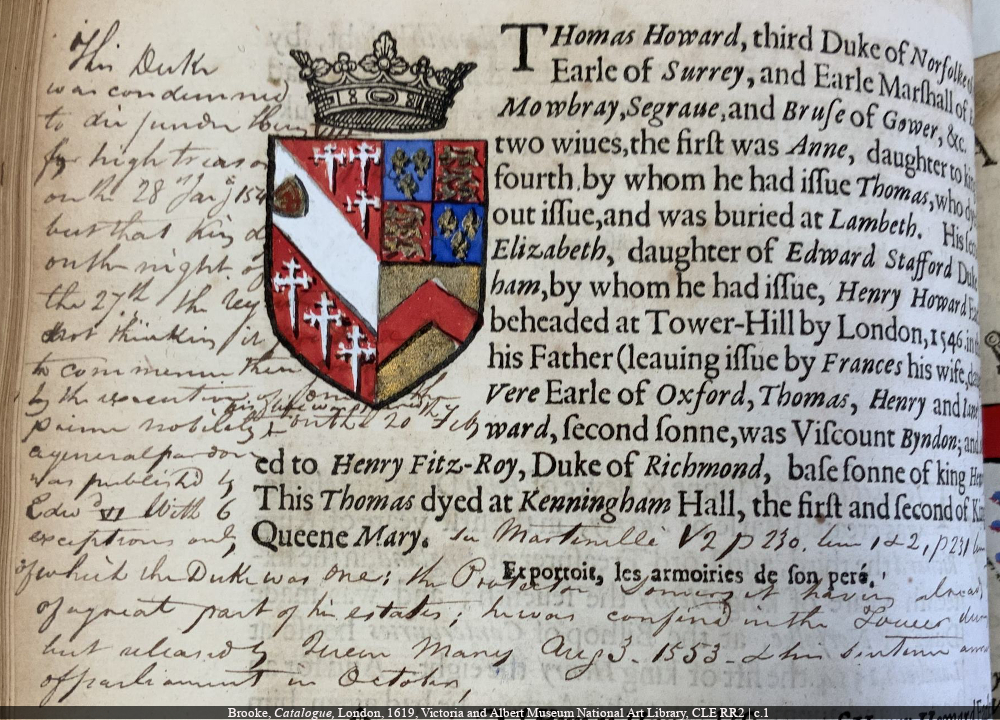 THomas Howard, third Duke of Norfolke
Earle of Surrey, and Earle Marſhall of
Mowbray, Segraue, and Bruſe of Gower, &c.
two wiues, the firſt was Anne, daughter to
fourth, by whom he had iſſue Thomas, who
out iſſue, and was buried at Lambeth. His
Elizabeth, daughter of Edward Stafford Duke
ham, by whom he had iſſue, Henry Howard
beheaded at Tower-Hill by London, 1546. in
his Father (leauing iſſue by Frances his wife,
Vere Earle of Oxford, Thomas, Henry and
ward, ſecond ſonne, was Viſcount Byndon; and
ed to Henry Fitz-Roy, Duke of Richmond, baſe ſonne of king
This Thomas dyed at Kenningham Hall, the firſt and ſecond of
Queene Mary.
Et portoit, les armoiries de ſon peré.
This Duke
was condemned
to die
for high treason
on the 28 Jany
but that King
on the night of
the 27th
not thinking fit
to commence
by the execution
prime nobility
on the 20 Feb
a general pardon
was published by
Edwd VI With 6
exceptions only
of which the Duke was one; the Protector Somerset having
of a great part of his estates; he was confind in the Tower
but released by Queen Mary Aug 3. 1553
of parliament in October
V2 p 230. line 1 & 2, p 231
Brooke, Catalogue, London, 1619, Victoria and Albert Museum National Art Library, CLE RR2 | c.1